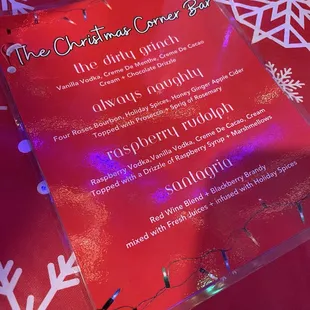 The Christmas Corner Bar
the dirty grinch
Vanilla Vodka, Creme De Menthe, Creme De Cacao
Cream + Chocolate Drizzle
always naughty
Four Roses Bourbon, Holiday Spices, Honey Ginger Apple Cider
Topped with Prosecco + Sprig of Rosemary
raspberry rudolph
Raspberry Vodka, Vanilla Vodka, Creme De Cacao, Cream
Topped with a Drizzle of Raspberry Syrup + Marshmallows
santagria
Red Wine Blend + Blackberry Brandy
mixed with Fresh Juices + infused with Holiday Spices